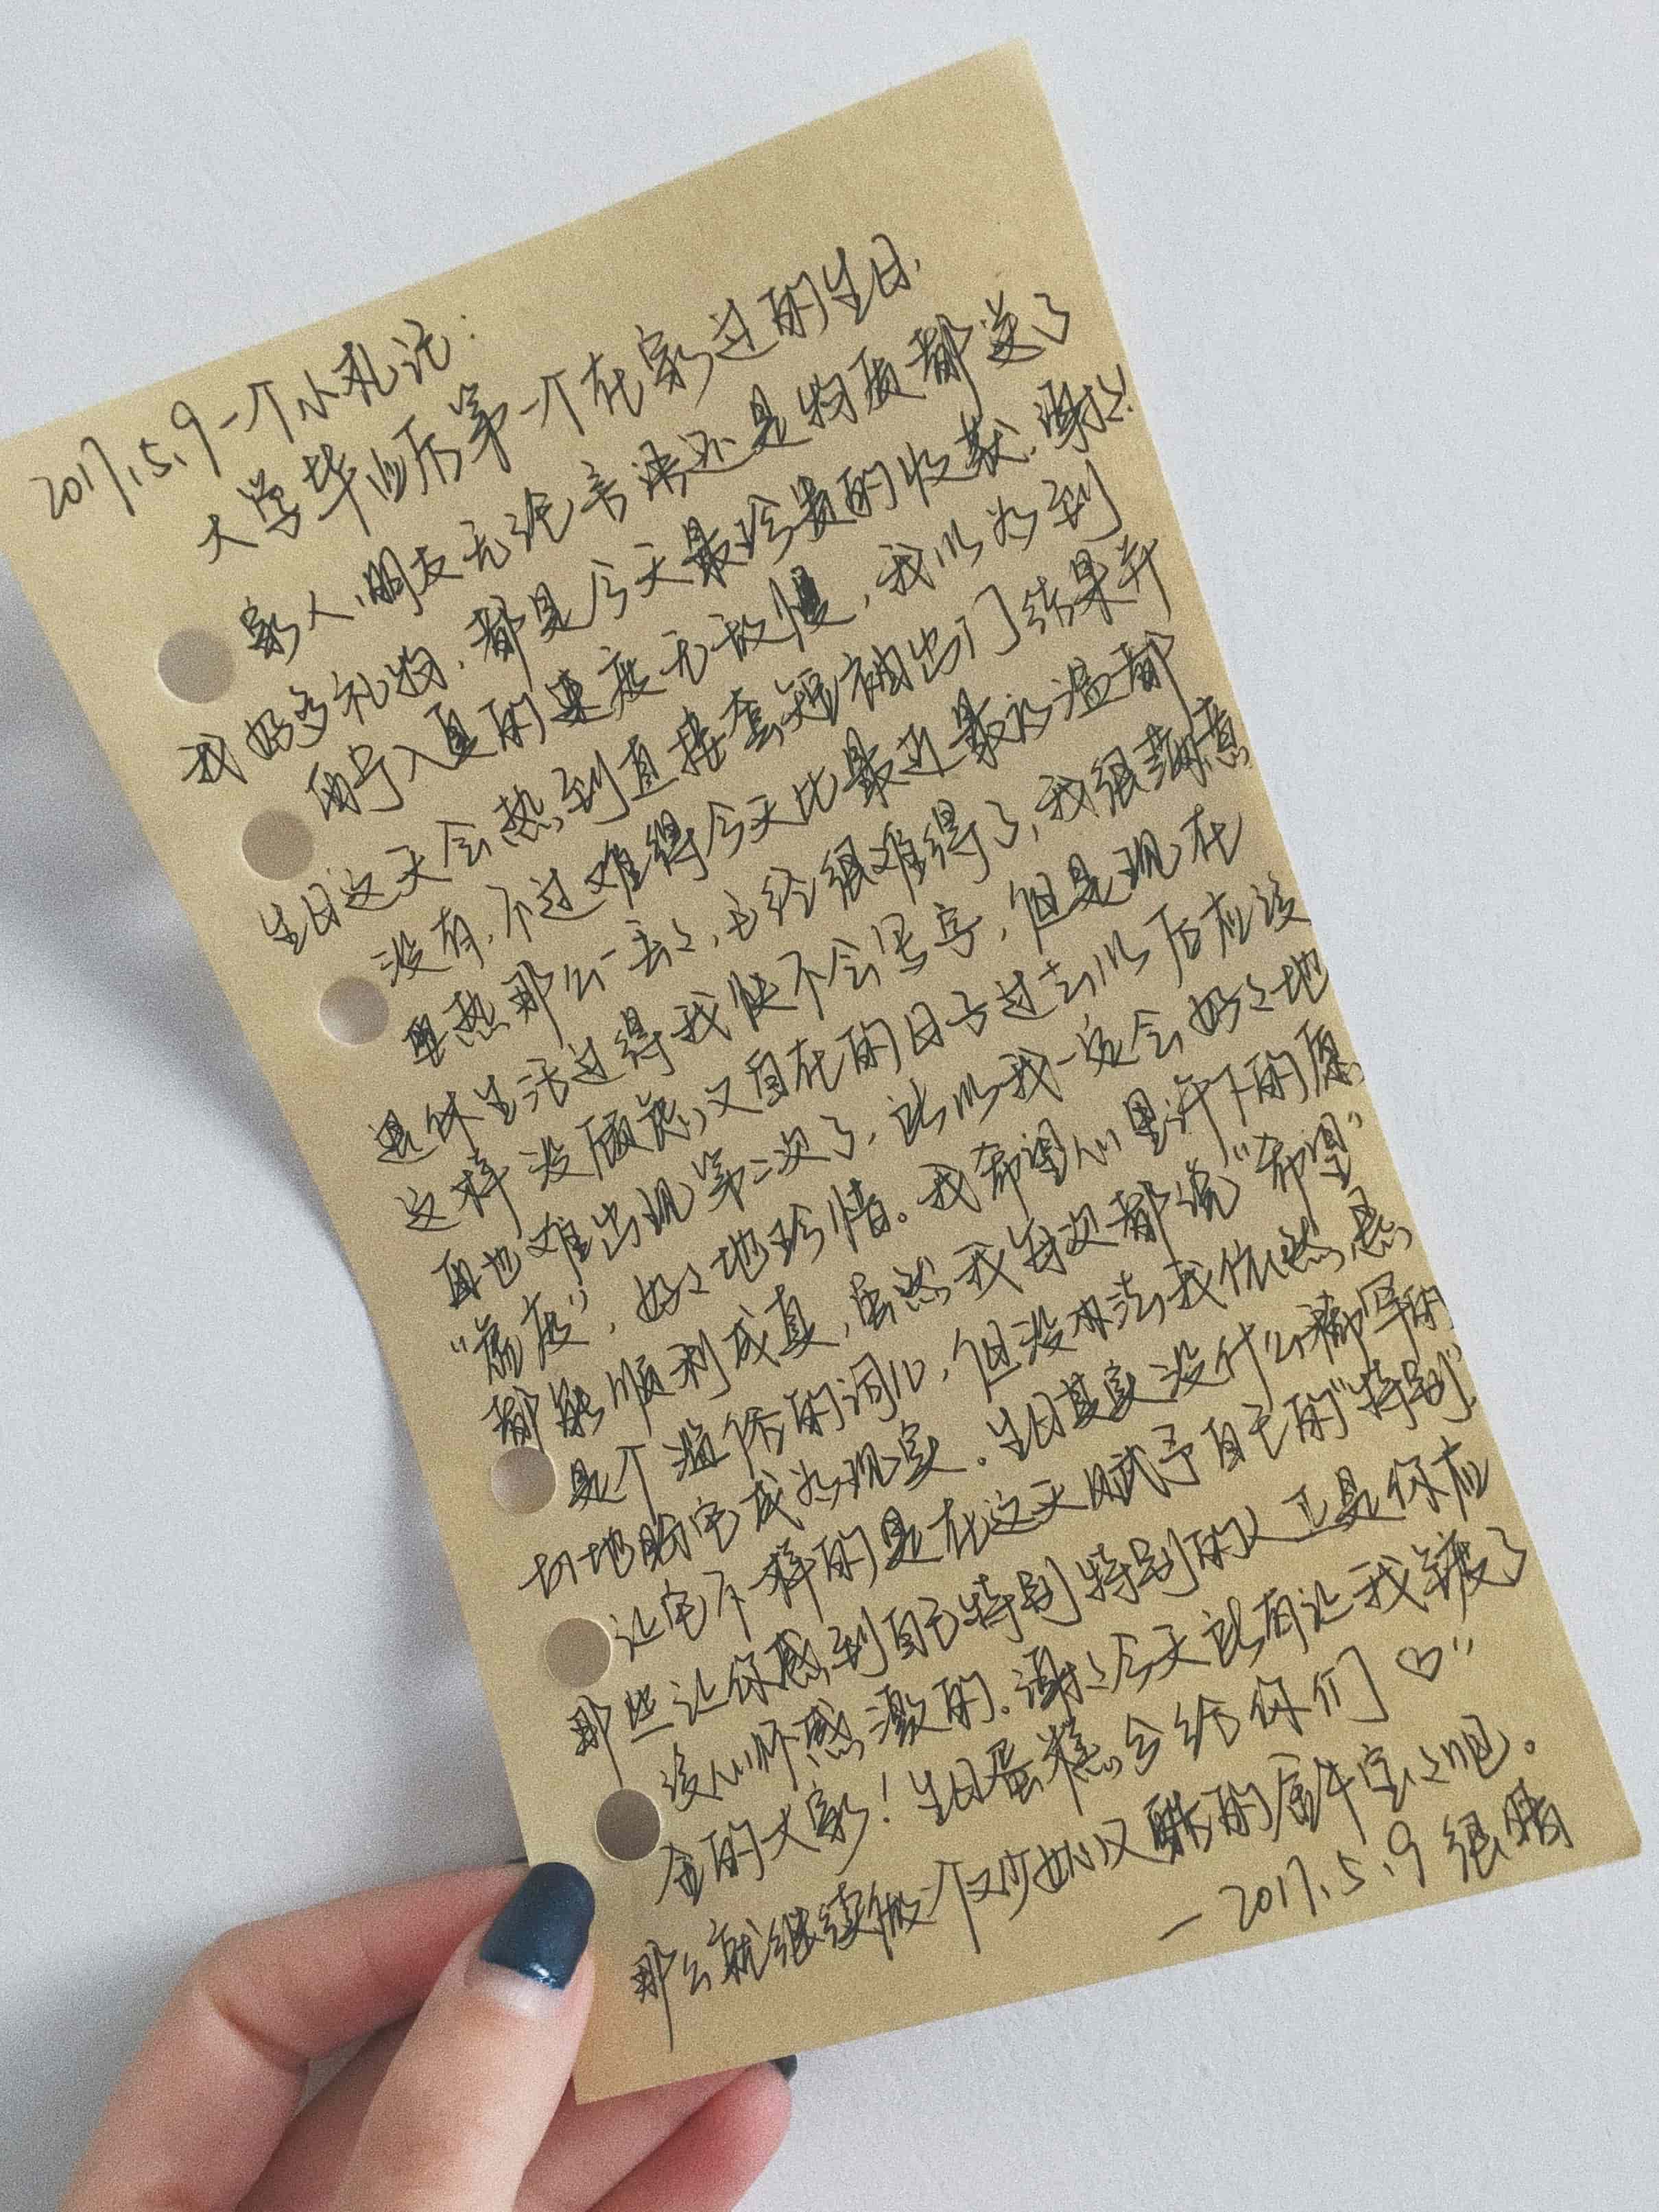 2017.5.9 一个小札记:
大学毕业后第一个在家过的生日.
家人、朋友无论言语还是物质都送了
我好多礼物,都是今天最珍贵的收获.谢谢!
南宁入夏的速度无敌慢,我以为到
生日这天会热到直接套短袖出门结果并
没有,不过难得今天比最近最初温都
要热那么一丢丢,已经很难得了,我很满意
退休生活过得我快不会写字,但是现在
这样没顾虑又自在的日子过去以后应该
再也难出现第二次了,所以我一定会好好地
“荒废”,好好地珍惜。我希望心里许下的愿
都能顺利成真,虽然我每次都说“希望”
是个滥俗的词儿,但没办法我依然恳
切地盼它成为现实。生日其实没什么特别的
让它不一样的是在这天赋予自己的“特别”
那些让你感到自己特别特别的人正是你应
该心怀感激的.谢谢今天所有让我破了
金的大家!生日蛋糕会给你们♡"
那么就继续做个又少女又酷的金牛宝宝吧。
—2017.5.9 很晴